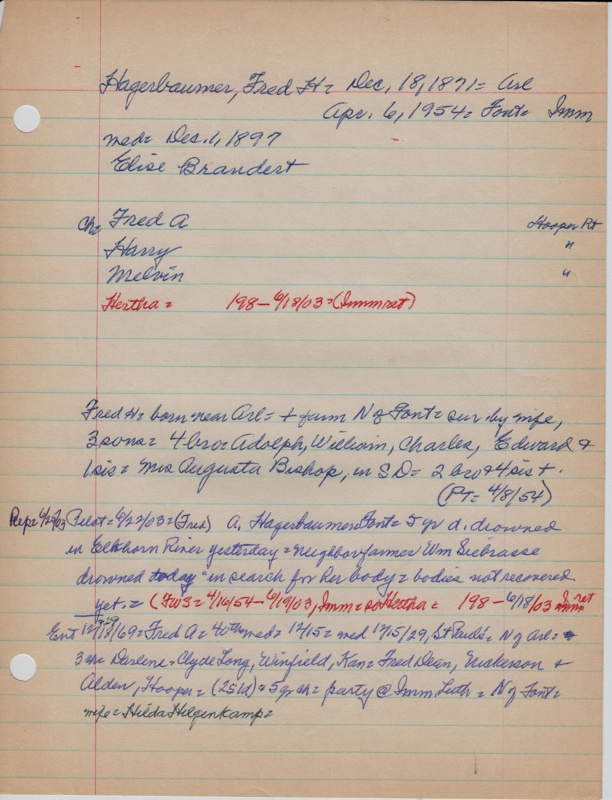 Hagerbaumer, Fred H = Dec. 18, 1871 = Arl
Apr. 6, 1954 = Font = Imm
med = Dec. 1, 1897
Elise Brandert
ch = Fred A Hooper Rt
Harry "
Melvin "
Hertha = 198 - 6/18/03 = (Imm ret)
Fred H = born near Arl = + farm N of Font = sur. by wife,
3 sons = 4 bro = Adolph, William, Charles, Edward +
1 sis = Mrs Augusta Bishop, in SD = 2 bro + 4 sis +.
(PT = 4/8/54)
Pilot = 6/22/03 = (Fred) A. Hagerbaumer Font = 5 yr d. drowned
in Elkhorn River yesterday = neighbor farmer Wm Siebrasse
drowned today "in search for her body = bodies not recovered
yet. = (FWS = 4/16/54 - 6/19/03, Imm = Hertha = 198 - 6/18/03 Imm ret
Ent 12/17/69 = Fred A = 40th med = 12/15 = med 12/15/29, St Pauls = N of Arl =
3 ch = Darlene = Clyde Long, Winfield, Kan = Fred Dean, Nickerson +
Alden, Hooper = (2 sld) + 5 gr ch = party @ Imm Luth = N of Font =
wife = Hilda Hilgenkamp =